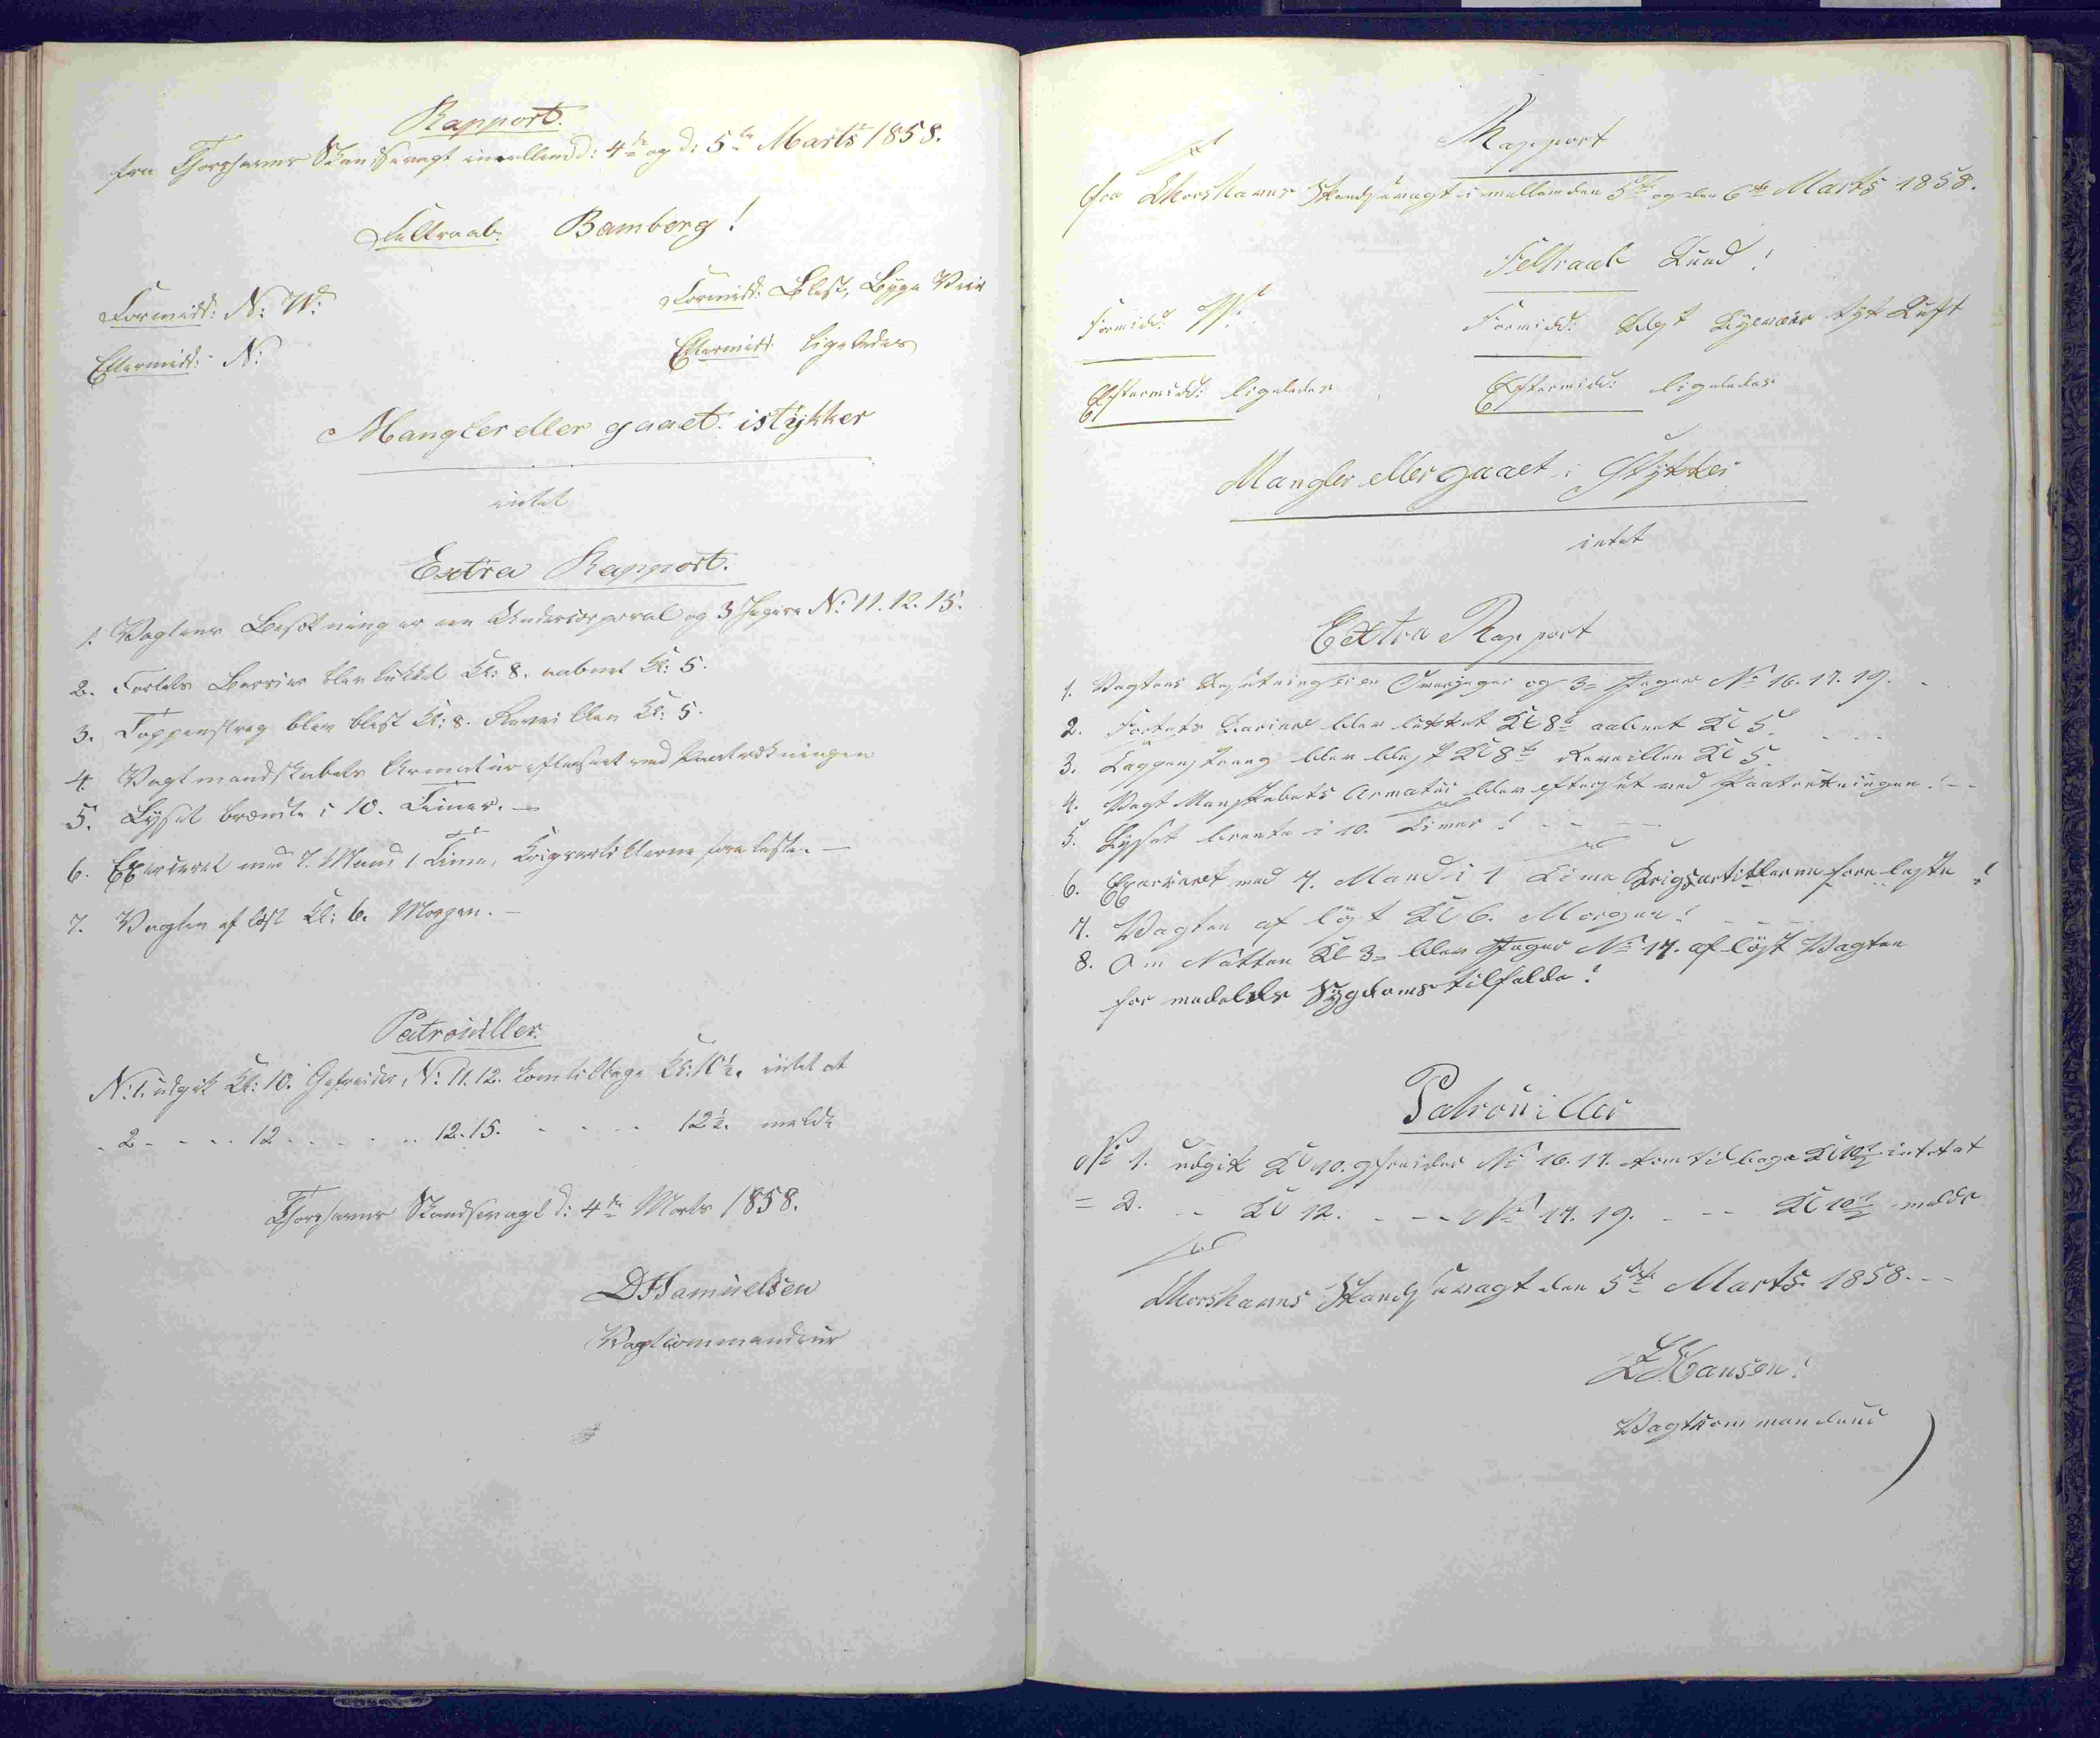 Rapport.
fra Thorshavns Skandsevagt imellem d: 4de og d: 5te Marts 1858.
Feltraab: Bamberg!
Formidd: N: W:
Formidd: Blest, Byge Veir
Eftermidd: N:
Eftermidd: ligeledes
Mangler eller gaaet istykker
intet
Extra Rapport.
1. Vagtens Besætning er een Undercorporal og 3 Jegere N: 11. 12. 15.
2. Fortets Barrier blev lukket Kl: 8. aabnet Kl: 5.
3. Tappenstreg blev blest Kl: 8. Reveillen Kl: 5.
4. Vagtmandskabets Armatur efterseet ved Paatrækningen
5. Lyset brændte i 10. Timer. —
6. Exerceret med 7. Mand 1 Time, Krigsartiklerne forelæste. —
7. Vagten afløst Kl: 6. Morgen. —
Patrouiller.
N: 1. udgik Kl: 10. Gefreider, N: 11. 12. kom tilbage Kl: 10½. intet at
- 2 - - - - 12 - - - - - 12. 15. - - - - 12½. melde
Thorshavns Skandsevagt d: 4de Marts 1858.
D Samuelsen
Vagtcommandeur
Rapport
fra Thorshavns Skandsevagt imellem den 5te og den 6te Marts 1858.
Feltraab Lund!
Formidd: W:
Formidd: Blest Bygeveir tyk Luft
Eftermidd: ligeledes
Eftermidd: ligeledes
Mangler eller gaaet i Stykker
intet
Extra Rapport
1. Vagtens Besetning er en Overjeger og 3 Jegere No 16. 17. 19. -
2. Fortets Bariere blev lukket Kl 8te aabnet Kl 5. - - -
3. Tappenstreng blev blest Kl 8te Reveillen Kl 5.
4. Vagt Manskabets Armatur blev efterset ved Paatrekningen! - -
5. Lyset brente i 10. Timer! - - -
6. Exerceret med 7. Mand i 1 Time Krigsartiklerne foreleste!
7. Vagten afløst Kl 6. Morgen! - - -
8. Om Natten Kl 3 blev Jeger No 17. afløst Vagten
formedelst Sygdomstilfelde!
Patrouiller
No 1. udgik Kl 10. gfreider No 16. 17. kom tilbage Kl 10½ intet at
= 2. - - Kl 12. - - - No 17. 19. - - - Kl 10½ melde
Thorshavns Skandsevagt den 5te Marts 1858. - -
Hansen!
Vagtkommandeur